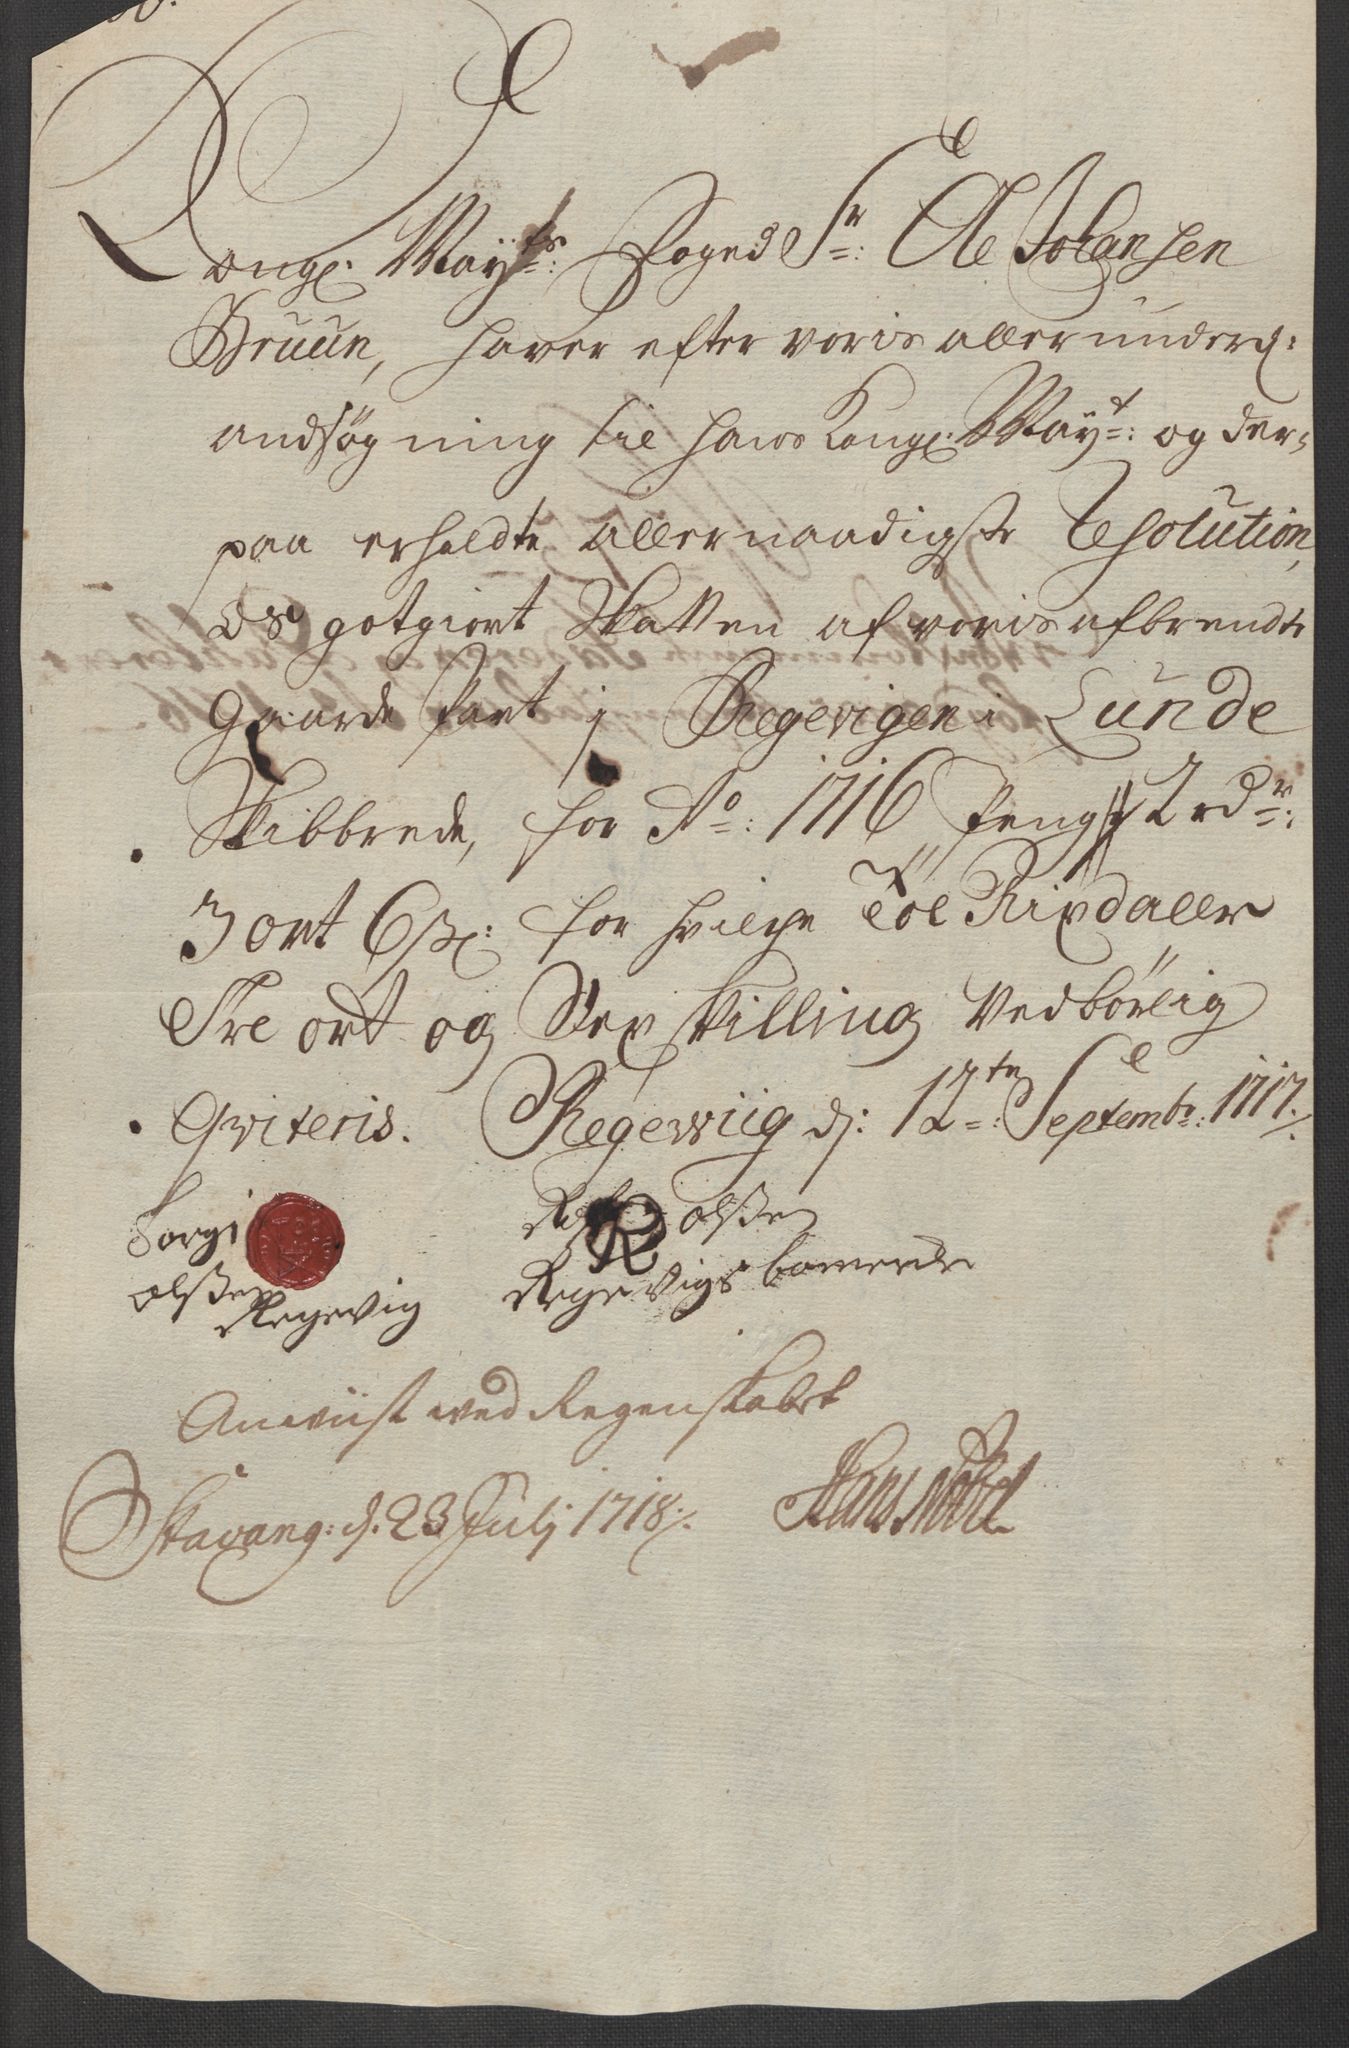 Kongl. Mayts: Foged Sr: Ole Johansen
Bruun, hafver efter voris allerunderd:
andsøgning til hans Kongl: Mayt: og der-
paa erholdte allernaadigste Resolution,
os gotgiort Skatten af voris afbrendte
Gaarde Part j Regevigen i Lunde
Skibbrede, for Ao: 1716 Penge 12 rdr:
3 ort 6 s: for hvilche Tol Rixdaller
Tre ort og Sex skilling vedbørlig
Qviteris. Regewiig d: 12te: Septembr: 1717.
Torgi
olßen
Regevig
olßen
Regevigs boemerke
Anviist ved Regenskabet
Stavang: d. 23 Julj 1718.
Hans Nobel